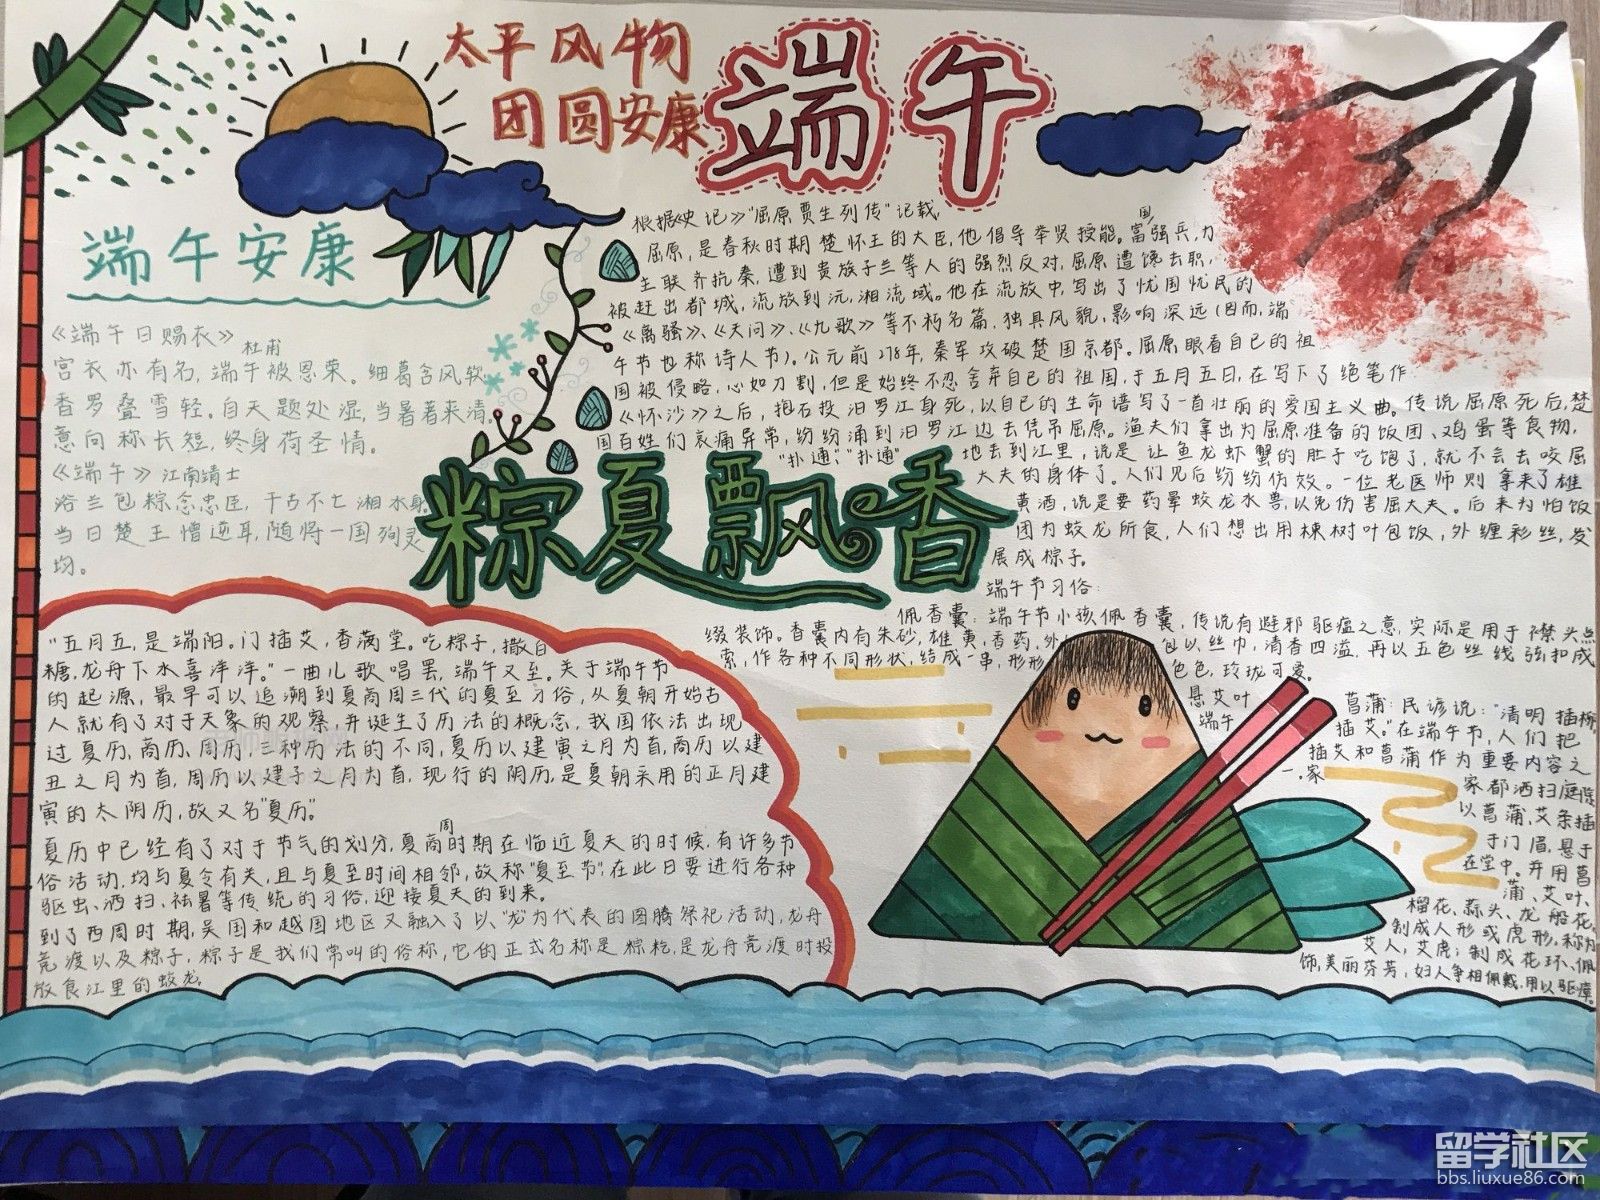 太平风物
团圆安康
端午
端午安康
《端午日赐衣》
杜甫
宫衣亦有名,端午被恩荣。细葛含风软,
香罗叠雪轻。自天题处湿,当暑著来清。
意向称长短,终身荷圣情。
《端午》江南靖士
浴兰包粽念忠臣,千古不亡湘水身。
当日楚王憎逆耳,随将一国殉灵
均。
根据《史记》"屈原贾生列传"记载,
屈原,是春秋时期楚怀王的大臣,他倡导举贤授能。富国强兵,力
主联齐抗秦,遭到贵族子兰等人的强烈反对,屈原遭馋去职,
被赶出都城,流放到沅,湘流域。他在流放中,写出了忧国忧民的
《离骚》、《天问》、《九歌》等不朽名篇,独具风貌,影响深远(因而,端
午节也称诗人节)。公元前278年,秦军攻破楚国京都。屈原眼看自己的祖
国被侵略,心如刀割,但是始终不忍舍弃自己的祖国,于五月五日,在写下了绝笔作
《怀沙》之后,抱石投汨罗江身死,以自己的生命谱写了一首壮丽的爱国主义曲。传说屈原死后,楚
国百姓们哀痛异常,纷纷涌到汨罗江边去凭吊屈原。渔夫们拿出为屈原准备的饭团、鸡蛋等食物,
"扑通"、"扑通"地丢到江里,说是让鱼龙虾蟹的肚子吃饱了,就不会去咬屈
大夫的身体了。人们见后纷纷仿效。一位老医师则拿来了雄
黄酒,说是要药晕蛟龙水兽,以免伤害屈大夫。后来为怕饭
团为蛟龙所食,人们想出用楝树叶包饭,外缠彩丝,发
展成棕子。
粽夏飘香
端午节习俗:
佩香囊:端午节小孩佩香囊,传说有避邪驱瘟之意,实际是用于襟头点
缀装饰。香囊内有朱砂,雄黄,香药,外包以丝巾,清香四溢,再以五色丝线弦扣成
索,作各种不同形状,结成一串,形形色色,玲珑可爱。
悬艾叶菖蒲:民谚说:"清明插柳,
端午插艾。"在端午节,人们把
插艾和菖蒲作为重要内容之
一。家家都洒扫庭院
以菖蒲、艾条插
于门眉,悬于
在堂中。并用菖
蒲、艾叶、
榴花、蒜头、龙船花,
制成人形或虎形,称为
艾人,艾虎;制成花环、佩
饰,美丽芬芳,妇人争相佩戴,用以驱瘴。
"五月五,是端阳。门插艾,香满堂。吃粽子,撒白
糖,龙舟下水喜洋洋。"一曲儿歌唱罢,端午又至。关于端午节
的起源,最早可以追溯到夏商周三代的夏至习俗,从夏朝开始古
人就有了对于天象的观察,并诞生了历法的概念,我国依法出现
过夏历,商历,周历,三种历法的不同,夏历以建寅之月为首,商历以建
丑之月为首,周历以建子之月为首,现行的阴历,是夏朝采用的正月建
寅的太阴历,故又名"夏历"。
夏历中已经有了对于节气的划分,夏商周时期在临近夏天的时候,有许多节
俗活动,均与夏令有关,且与夏至时间相邻,故称"夏至节",在此日要进行各种
驱虫、洒扫、祛暑等传统的习俗,迎接夏天的到来。
到了西周时期,吴国和越国地区又融入了以"龙"为代表的图腾祭祀活动,龙舟
竞渡以及粽子,粽子是我们常叫的俗称,它的正式名称是粽籺,是龙舟竞渡时投
放食江里的蛟龙。
留学社区
bbs.liuxue86.com